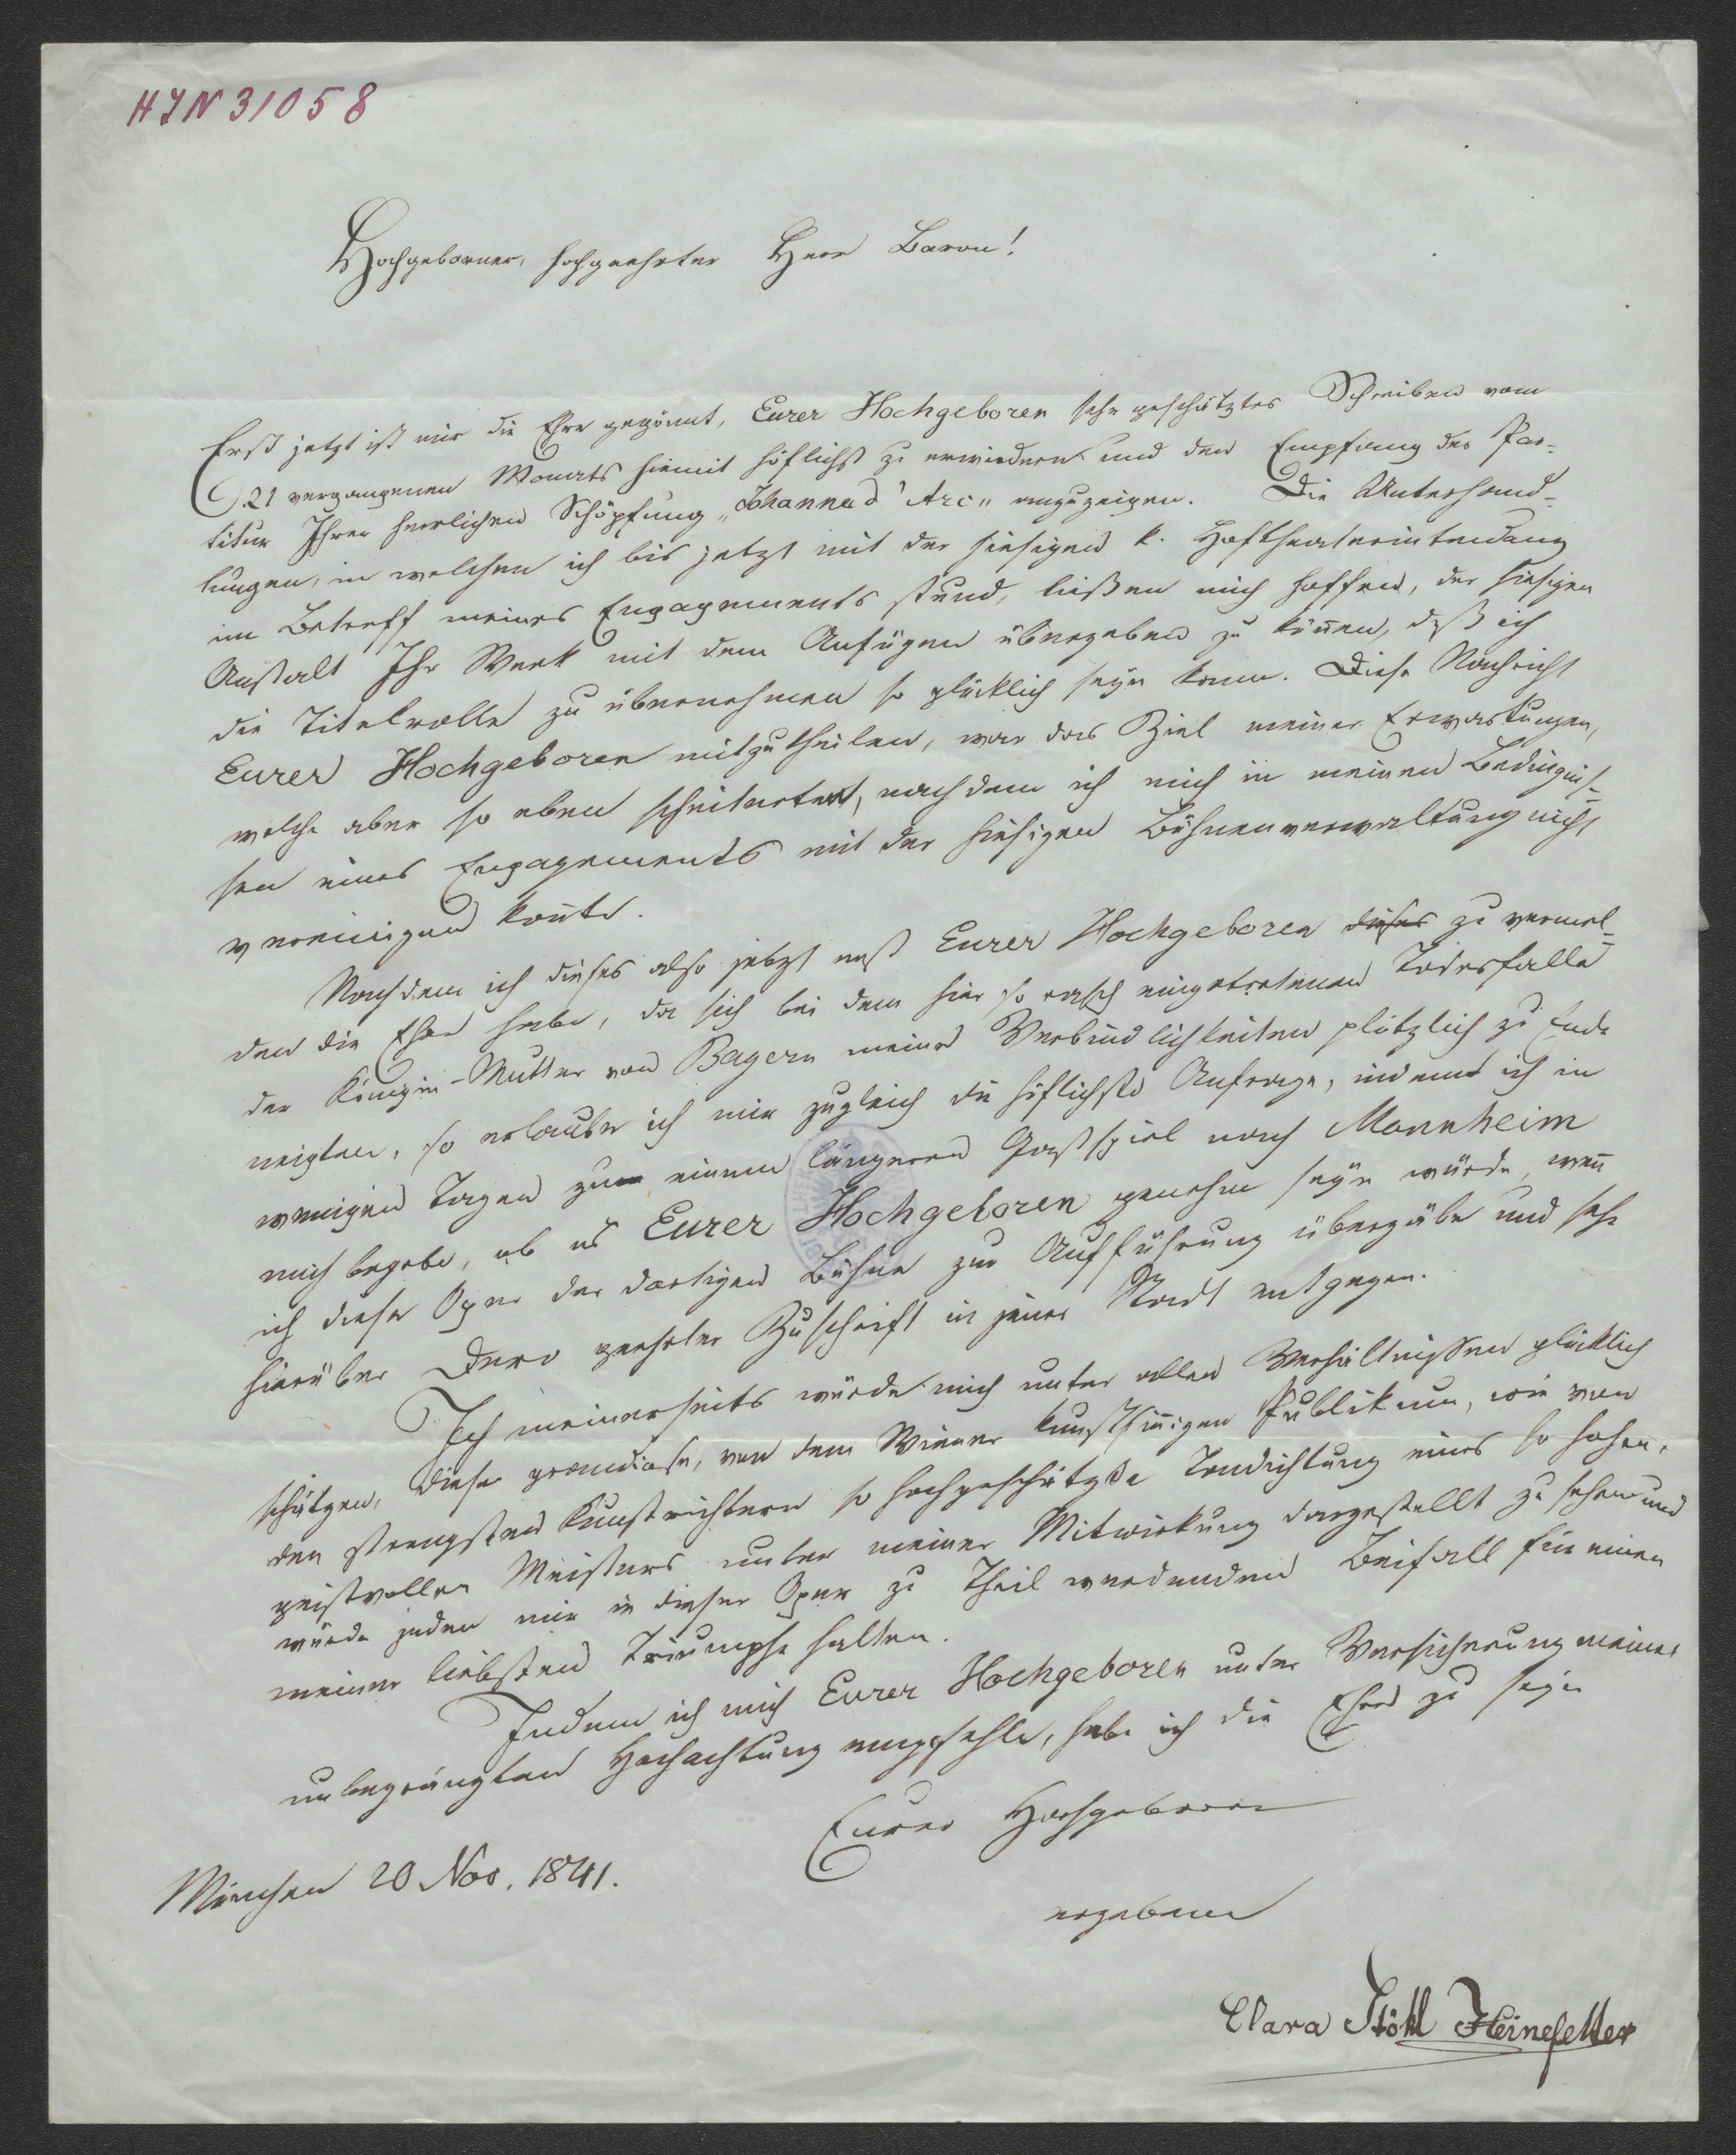 HIN 31058
Hochgeborner, hochgeehrter Herr Baron!
Erst jetzt ist mir die Ehre gegönnt, Eurer Hochgeboren sehr geschätztes Schreiben vom
21 vergangenen Monats hiemit höflichst zu erwiedern und den Empfang der Par-
titur Ihrer herrlichen Schöpfung „Johanna d'Arc" anzuzeigen. Die Unterhand-
lungen, in welchen ich bis jetzt mit der hiesigen k. Hoftheaterintendanz
im Betreff meines Engagements stund, ließen mich hoffen, der hiesigen
Anstalt Ihr Werk mit dem Anfügen übergeben zu können, daß ich
die Titelrolle zu übernehmen so glücklich seyn kann. Diese Nachricht
Eurer Hochgeboren mitzutheilen, war das Ziel meiner Erwartungen,
welche aber so eben scheiterten, nachdem ich mich in meinen Bedingnis-
sen eines Engagements mit der hiesigen Bühnenverwaltung nicht
vereinigen konnte.
Nachdem ich dieses also jetzt erst Eurer Hochgeboren dieses zu vermel-
den die Ehre habe, da sich bei dem hier so rasch eingetretenen Todesfalle
der Königin-Mutter von Bayern meine Verbindlichkeiten plötzlich zu Ende
neigten, so erlaube ich mir zugleich die höflichste Anfrage, indem ich in
wenigen Tagen zu einem längeren Gastspiel nach Mannheim
mich begebe, ob es Eurer Hochgeboren genehm seyn würde, wenn
ich diese Oper der dortigen Bühne zur Aufführung übergäbe und sehe
hierüber Dero geehrter Zuschrift in jener Stadt entgegen.
Ich meinerseits würde mich unter allen Verhältnissen glücklich
schätzen, diese grandiose, von dem Wiener kunstsinnigen Publikum, wie von
den strengsten Kunstrichtern so hochgeschätzte Tondichtung eines so hohen,
geistvollen Meisters unter meiner Mitwirkung dargestellt zu sehen und
würde jeden mir in dieser Oper zu Theil werdenden Beifall für einen
meiner liebsten Triumphe halten.
Indem ich mich Eurer Hochgeboren unter Versicherung meiner
unbegränzten Hochachtung empfehle, habe ich die Ehre zu seyn
Eurer Hochgeboren
München 20 Nov. 1841.
ergebene
Clara Stökl Heinefetter